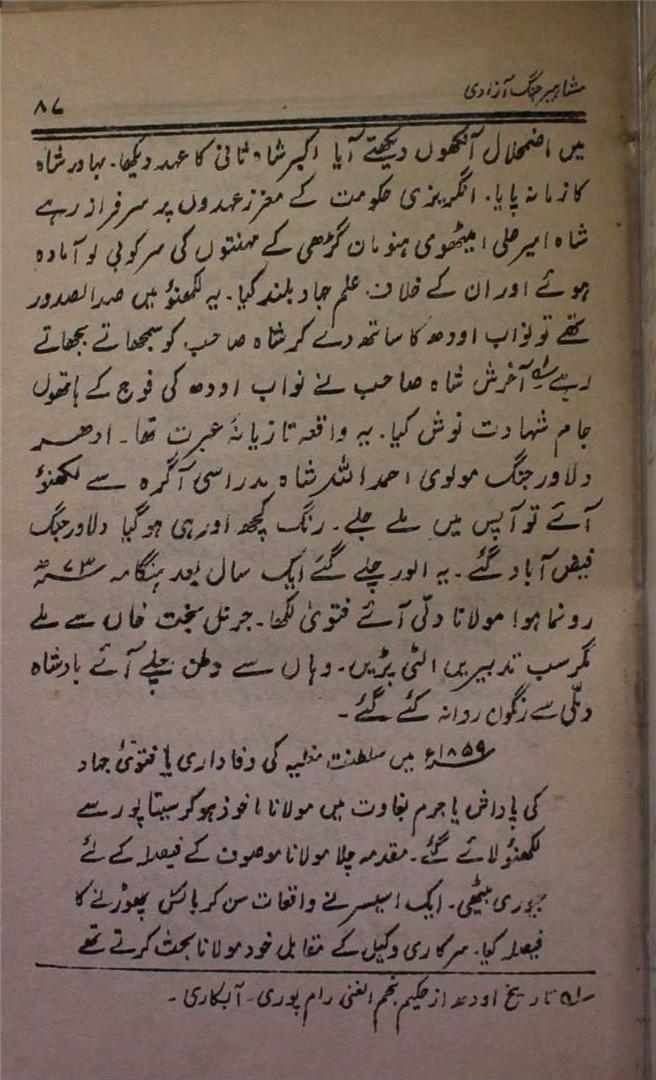 مشاہیر جنگ آزادی
۸۷
میں اضمحلال آنکھوں دیکھتے آیا اکبر شاہ ثانی کا عہد دیکھا۔ بہادر شاہ
کا زمانہ پایا۔ انگریزی حکومت کے معزز عہدوں پر سرفراز رہے
شاہ امیر علی امیٹھوی ہنومان گڑھی کے مہنتوں کی سرکوبی لو آمادہ
ہوئے اور ان کے خلاف علم جہاد بلند کیا۔ یہ لکھنؤ میں صدر الصدور
تھے تو نواب اودھ کا ساتھ دے کر شاہ صاحب کو سمجھاتے بجھاتے
رہے ؎۱ آخرش شاہ صاحب نے نواب اودھ کی فوج کے ہاتھوں
جام شہادت نوش کیا۔ یہ واقعہ تازیانۂ عبرت تھا۔ ادھر
دلاور جنگ مولوی احمد اللہ شاہ مدراسی آگرہ سے لکھنؤ
آئے تو آپس میں ملے جلے۔ رنگ کچھ اور ہی ہو گیا دلاور جنگ
فیض آباد گئے۔ یہ الور چلے گئے ایک سال بعد ہنگامہ ۷۳ھ
رونما ہوا مولانا دلّی آئے فتویٰ لکھا۔ جرنل بخت خاں سے ملے
مگر سب تدبیریں الٹی پڑیں۔ وہاں سے وطن چلے آئے بادشاہ
دلّی سے رنگون روانہ کئے گئے۔
۱۸۵۹ء میں سلطنت مغلیہ کی وفاداری یا فتویٰ جہاد
کی پاداش یا جرم بغاوت میں مولانا ماخوذ ہو کر سیتاپور سے
لکھنؤ لائے گئے۔ مقدمہ چلا مولانا موصوف کے فیصلہ کے لئے
جیوری بیٹھی۔ ایک اسیسر نے واقعات سن کر بالکل چھوڑنے کا
فیصلہ کیا۔ سرکاری وکیل کے مقابل خود مولانا بحث کرتے تھے
؎۱ تاریخ اودھ از حکیم نجم الغنی رام پوری۔ آبکاری۔